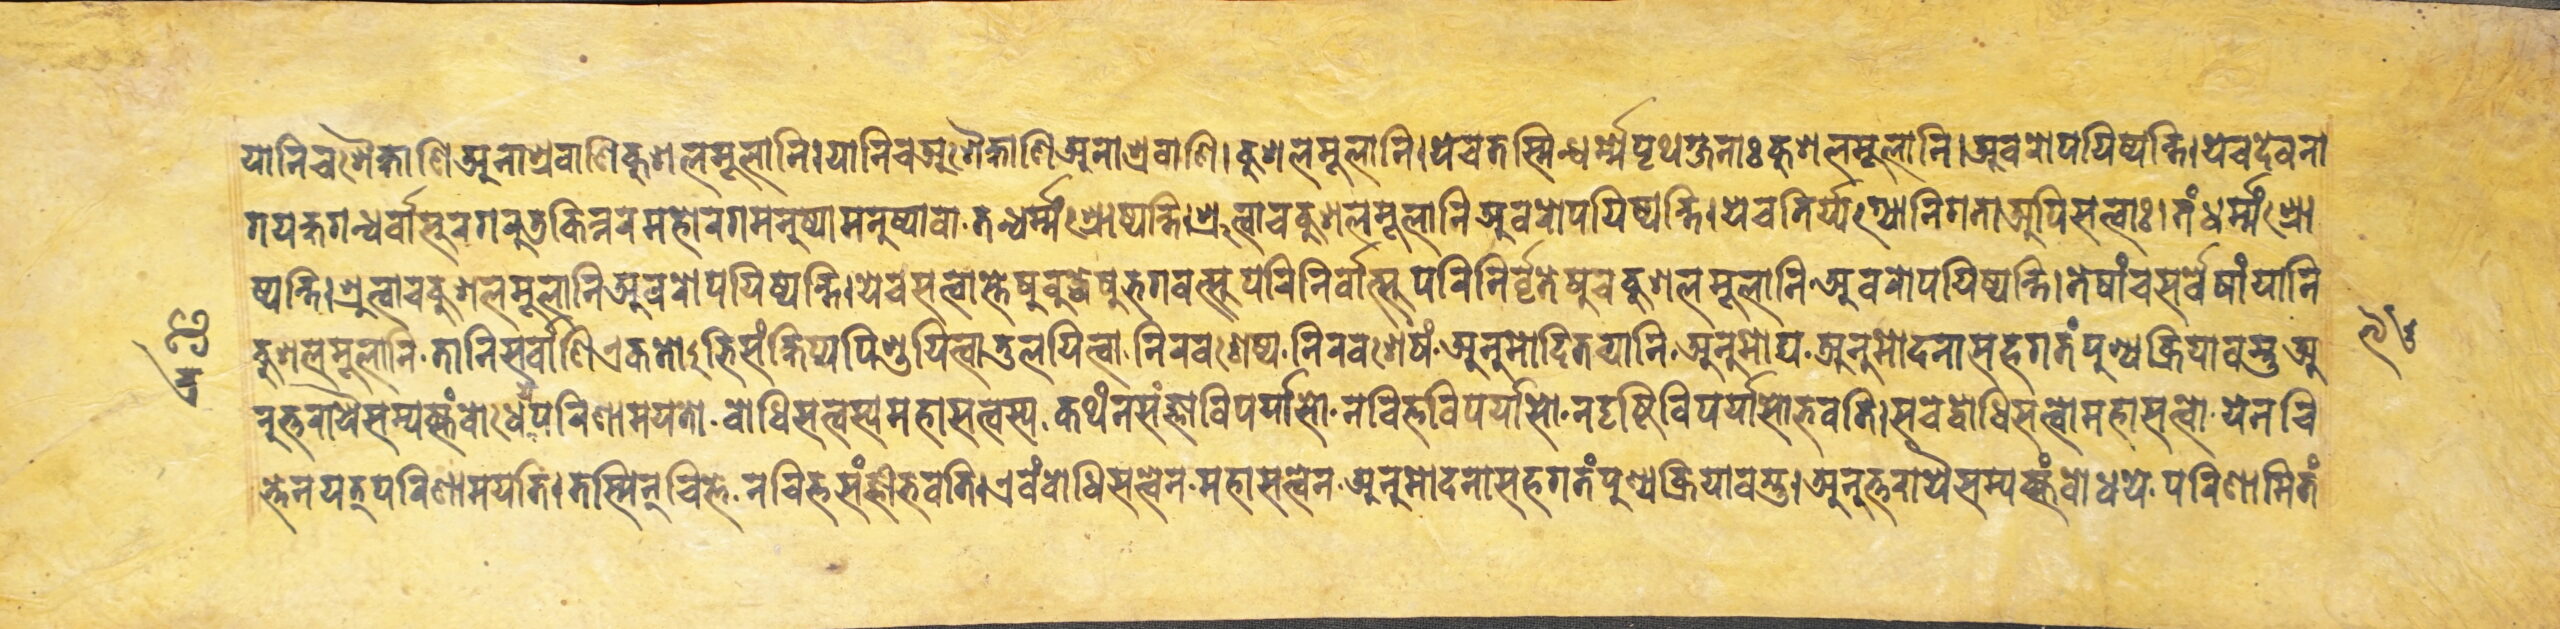 यानिचशैक्षाणिअनाश्रवाणिकुशलमूलानि।यानिचअशैक्षाणिअनाश्रवाणि।कुशलमूलानि।येचतस्मिन्धर्म्मेपृथग्जनाःकुशलमूलानि।अवरोपयिष्यन्ति।येचदेवना
गयक्षगन्धर्वासुरगरुडकिन्नरमहोरगमनुष्यामनुष्यावो·तन्धर्म्मंश्रोष्यन्ति।श्रुत्वाचकुशलमूलानिअवरोपयिष्यन्ति।येचतिर्य्यग्योनिगताअपिसत्वाः।तंधर्म्मंश्रो
ष्यन्ति।श्रुत्वाचकुशलमूलानिअवरोपयिष्यन्ति।येचसत्वास्तेषुबुद्धेषुभगवत्सुपरिनिर्वात्सुपरिनिर्वृतेषुचकुशलमूलानि·अवरोपयिष्यन्ति।तेषांचसर्वेषांयानि
कुशलमूलानि·तानिसर्वाणिएकतोऽभिसंक्षिप्यपिण्डयित्वातुलयित्वा·निरवशेष्य·निरवशेषं·अनुमोदितव्यानि·अनुमोद्य·अनुमोदनासहगतंपुण्यक्रियावस्तुअ
नुत्तरायैसम्यक्संबोधेपरिणामयतो·बोधिसत्वस्यमहासत्वस्य·कथंनसंज्ञाविपर्यासो·नचित्तविपर्यासो·नदृष्टिविपर्यासोभवति।सचेद्बोधिसत्वोमहासत्वो·येनचि
त्तेनयत्परिणामयति।तस्मिन्चित्ते·नचित्तसंज्ञीभवति।एवंबोधिसत्वेन·महासत्वेन·अनुमोदनासहगतंपुण्यक्रियावस्तु।अनुत्तरायैसम्यक्संबोधये·परिणामितं